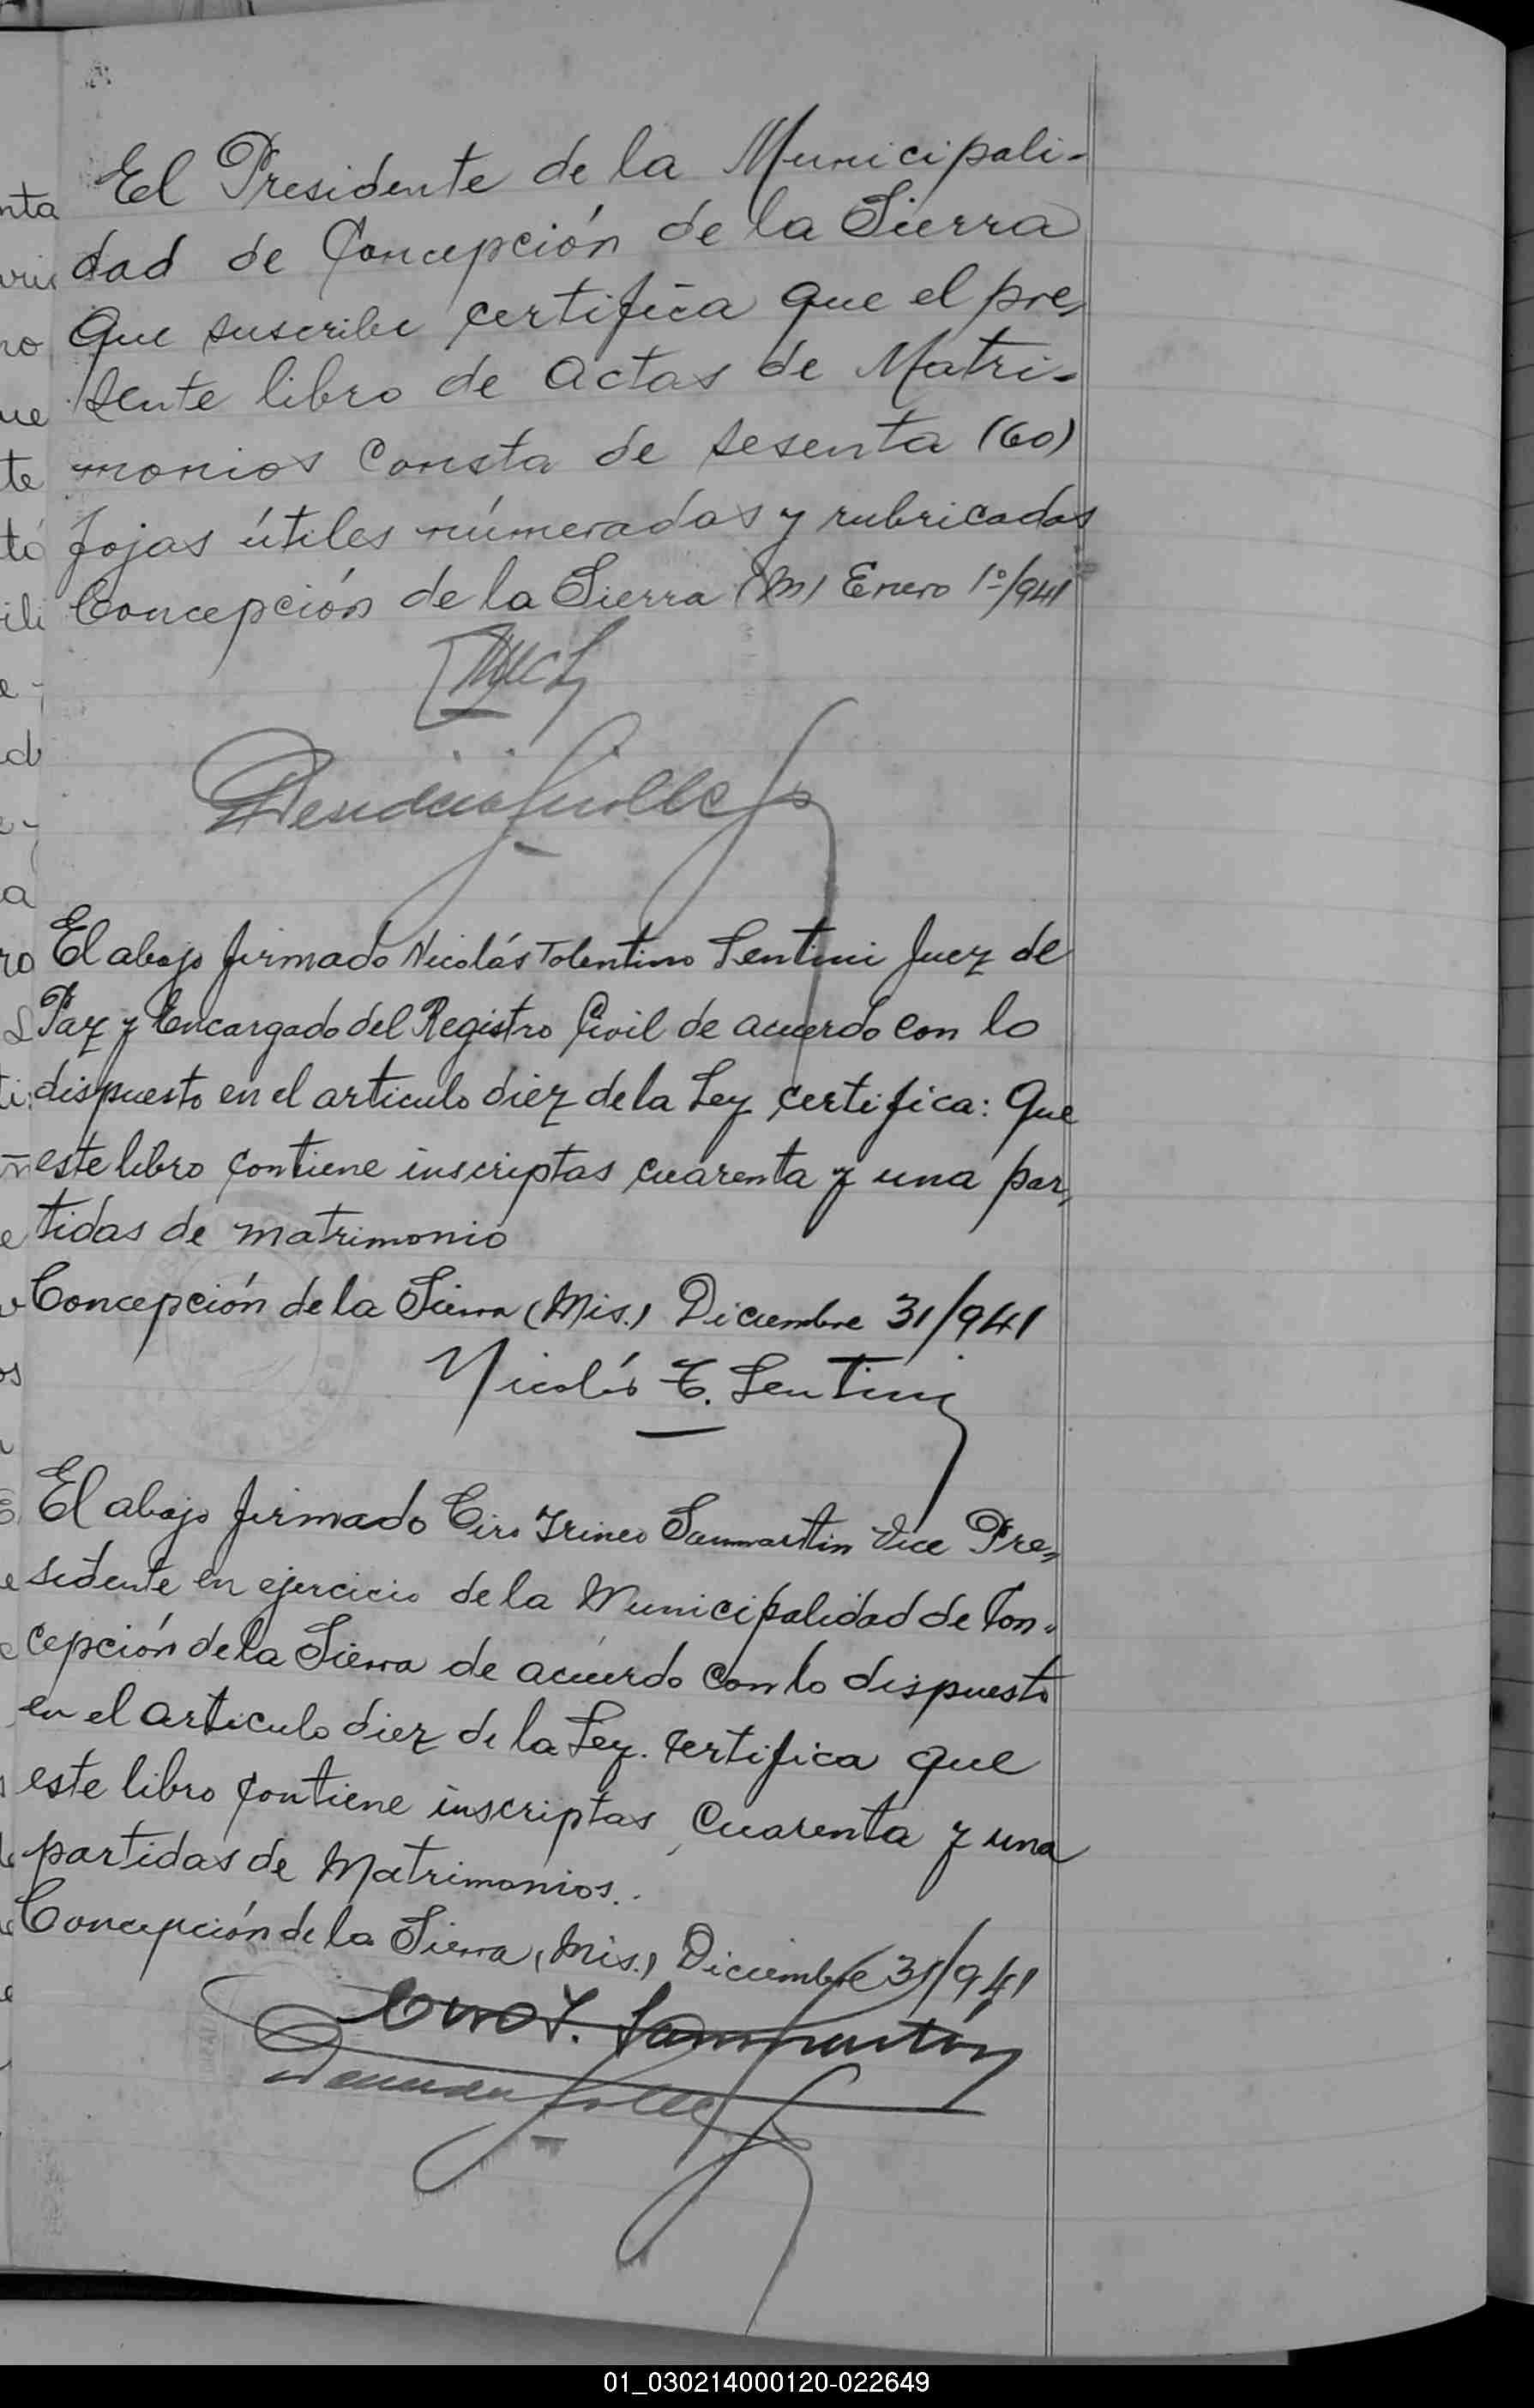 El Presidente de la Municipali-
dad de Concepción de la Sierra
que suscribe certifica que el pre,
sente libro de actas de Matri-
monios consta de sesenta (60)
fojas útiles números y rubricadas
Concepción de la Sierra (M) Enero 1º/941
El abajo firmado Nicolás Tolentino Sentini Juez de
Paz y Encargado del Registro Civil de acuerdo con lo
dispuesto en el articulo diez de la Ley certifica: Que
este libro contiene inscriptas cuarenta y una par,
tidas de matrimonio
Concepción de la Sierra (Mis.) Diciembre 31/941
Nicolás T. Sentini
El abajo firmado Ciro Irineo Sanmartin Vice Pre,
sidente en ejercicio de la Municipalidad de Con,
cepción de la Sierra de acuerdo con lo dispuesto
en el articulo diez de la Ley. Certifica que
este libro contiene inscriptas cuarenta y una
partidas de Matrimonios.
Concepción de la Sierra (Mis.) Diciembre 31/941
Ciro I. Sanmartín
01_030214000120-022649